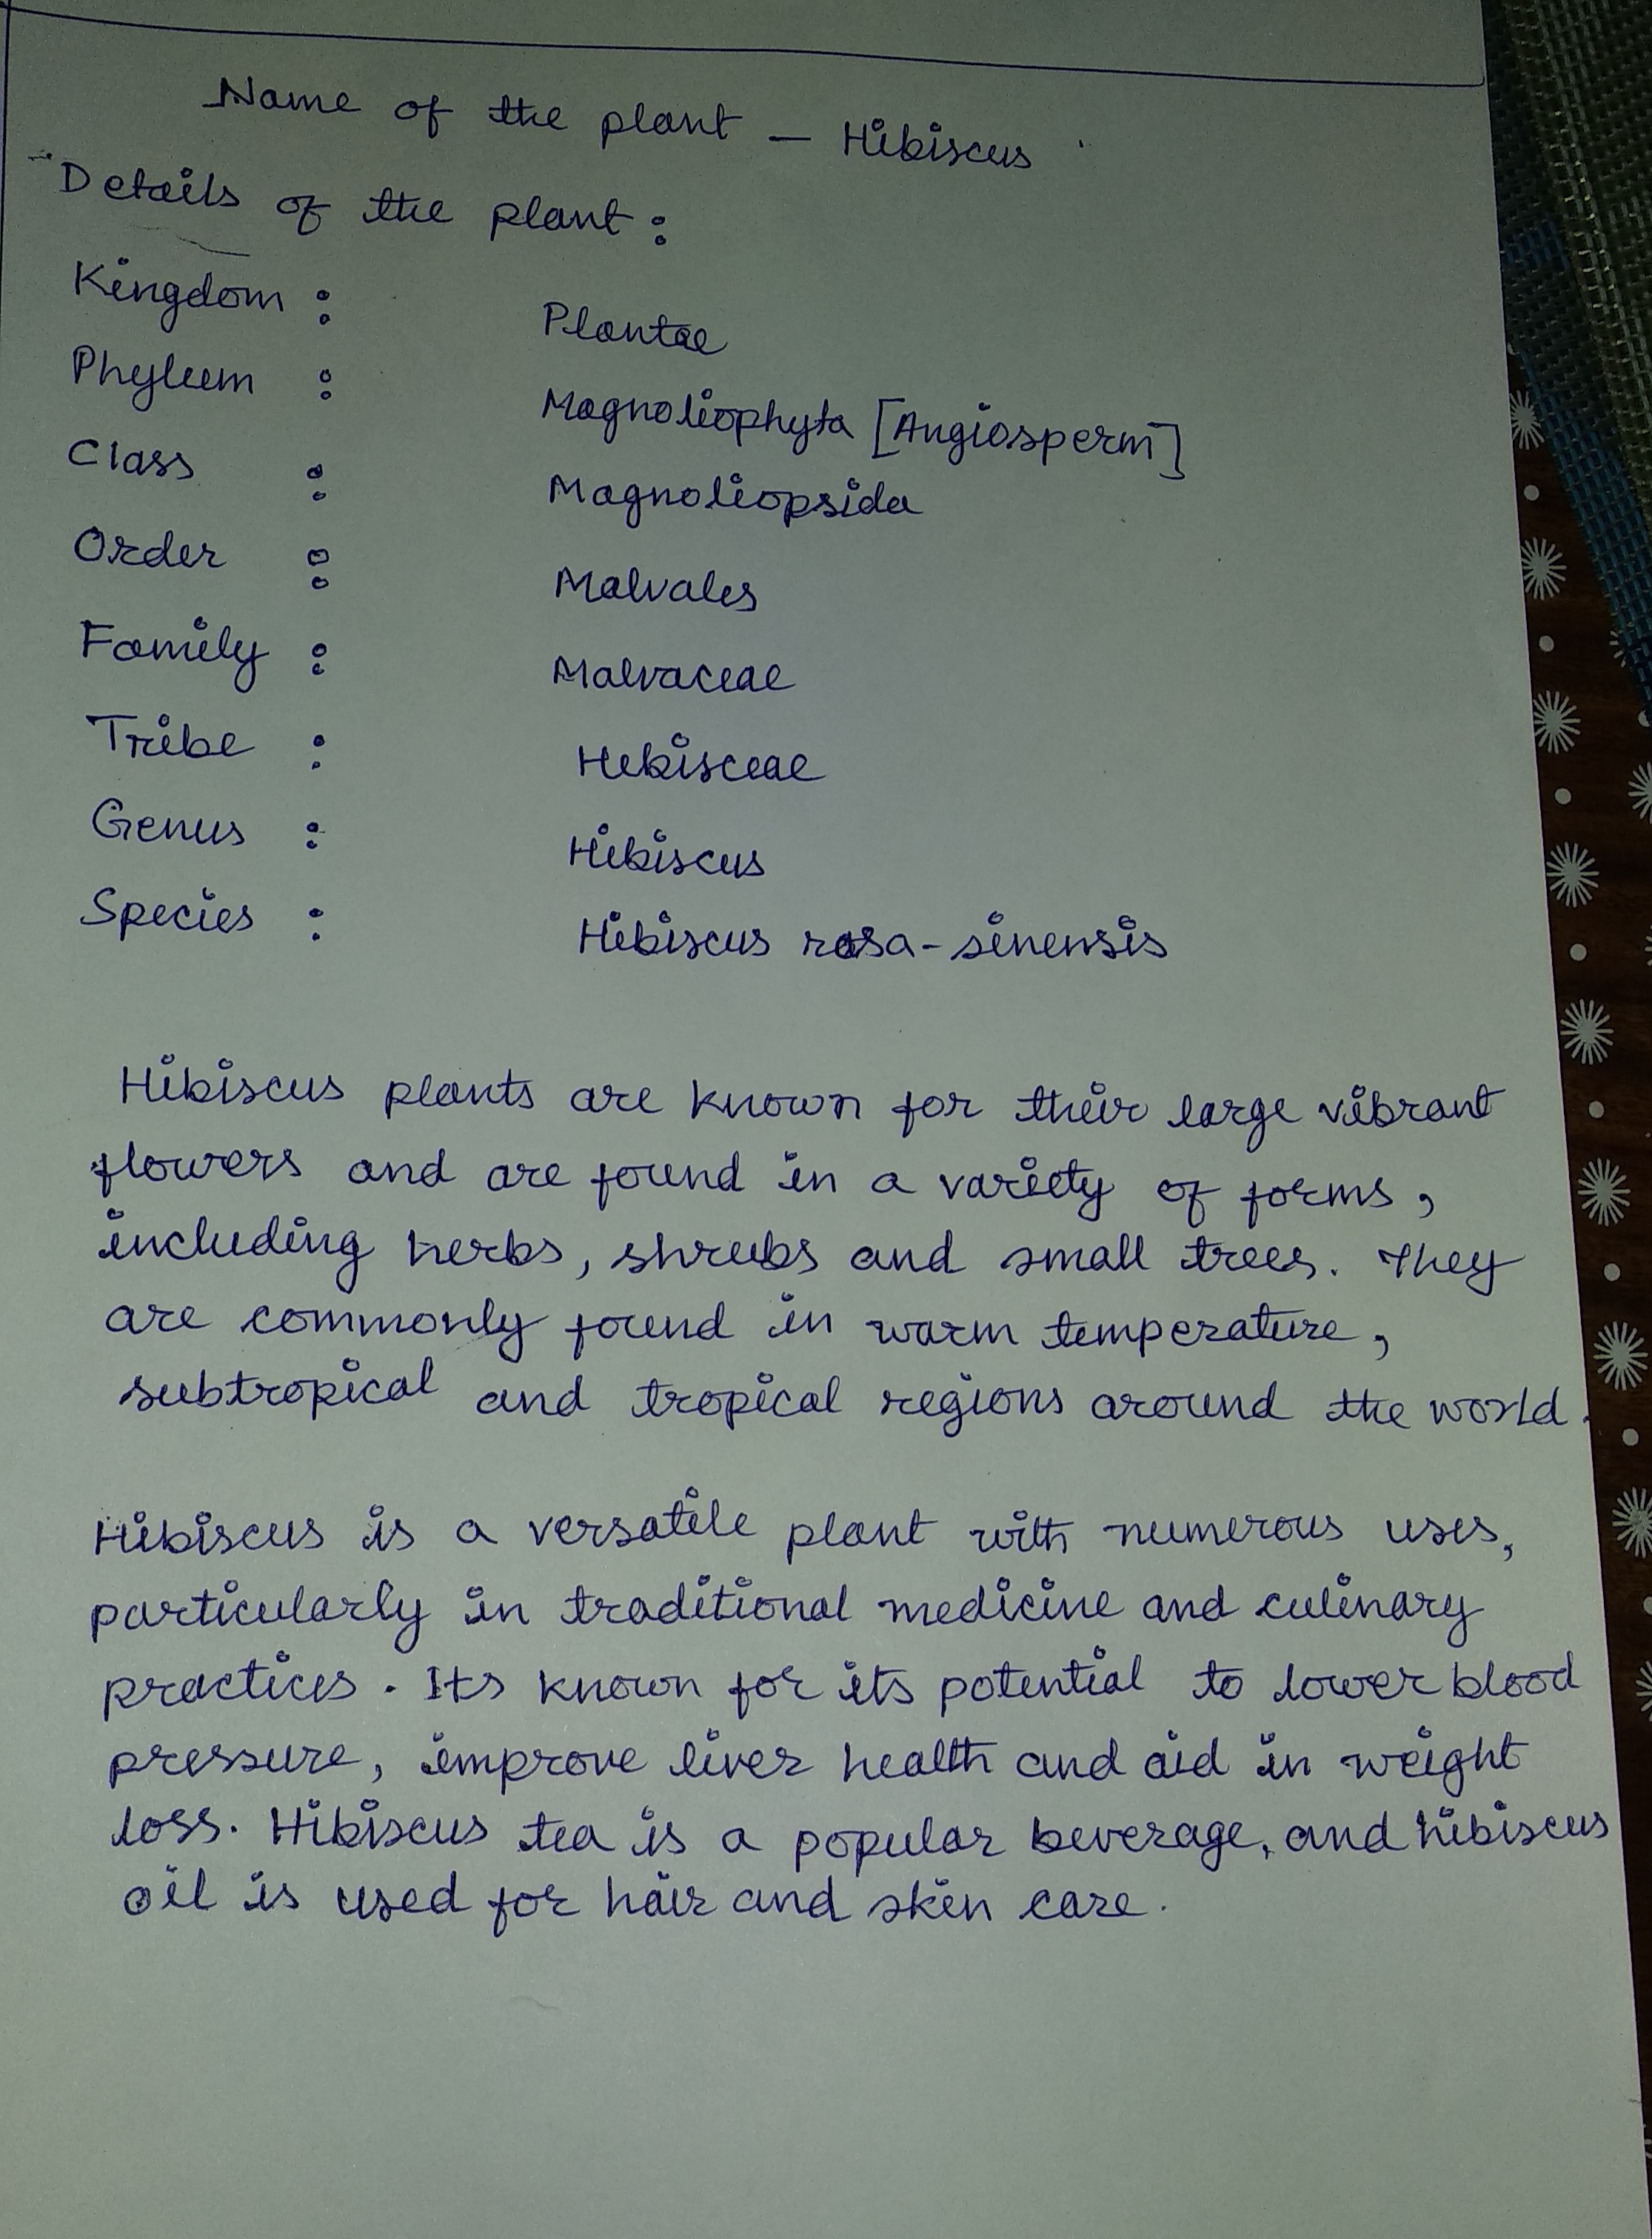 Name of the plant — Hibiscus
Details of the plant :
Kingdom : Plantae
Phylum : Magnoliophyta [Angiosperm]
Class : Magnoliopsida
Order : Malvales
Family : Malvaceae
Tribe : Hebisceae
Genus : Hibiscus
Species : Hibiscus rosa-sinensis
Hibiscus plants are known for their large vibrant
flowers and are found in a variety of forms,
including herbs, shrubs and small trees. They
are commonly found in warm temperature,
subtropical and tropical regions around the world.
Hibiscus is a versatile plant with numerous uses,
particularly in traditional medicine and culinary
practices. Its known for its potential to lower blood
pressure, improve liver health and aid in weight
loss. Hibiscus tea is a popular beverage, and hibiscus
oil is used for hair and skin care.